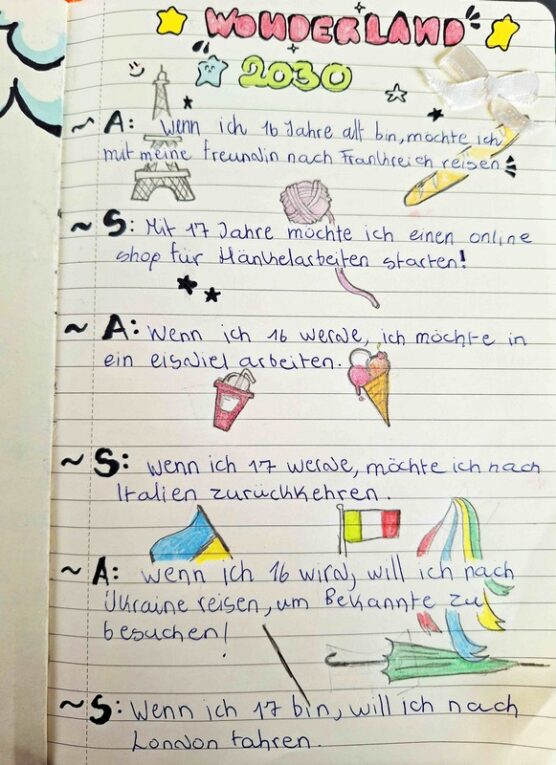 WONDERLAND
2030
~ A: Wenn ich 16 Jahre alt bin, möchte ich
mit meine freundin nach Frankreich reisen
~ S: Mit 17 Jahre möchte ich einen online
shop für Hänkelarbeiten starten!
~ A: Wenn ich 16 werde, ich möchte in
ein eisdiel arbeiten.
~ S: Wenn ich 17 werde, möchte ich nach
Italien zurückkehren.
~ A: Wenn ich 16 wird, will ich nach
Ukraine reisen, um Bekannte zu
besuchen!
~ S: Wenn ich 17 bin, will ich nach
London fahren.